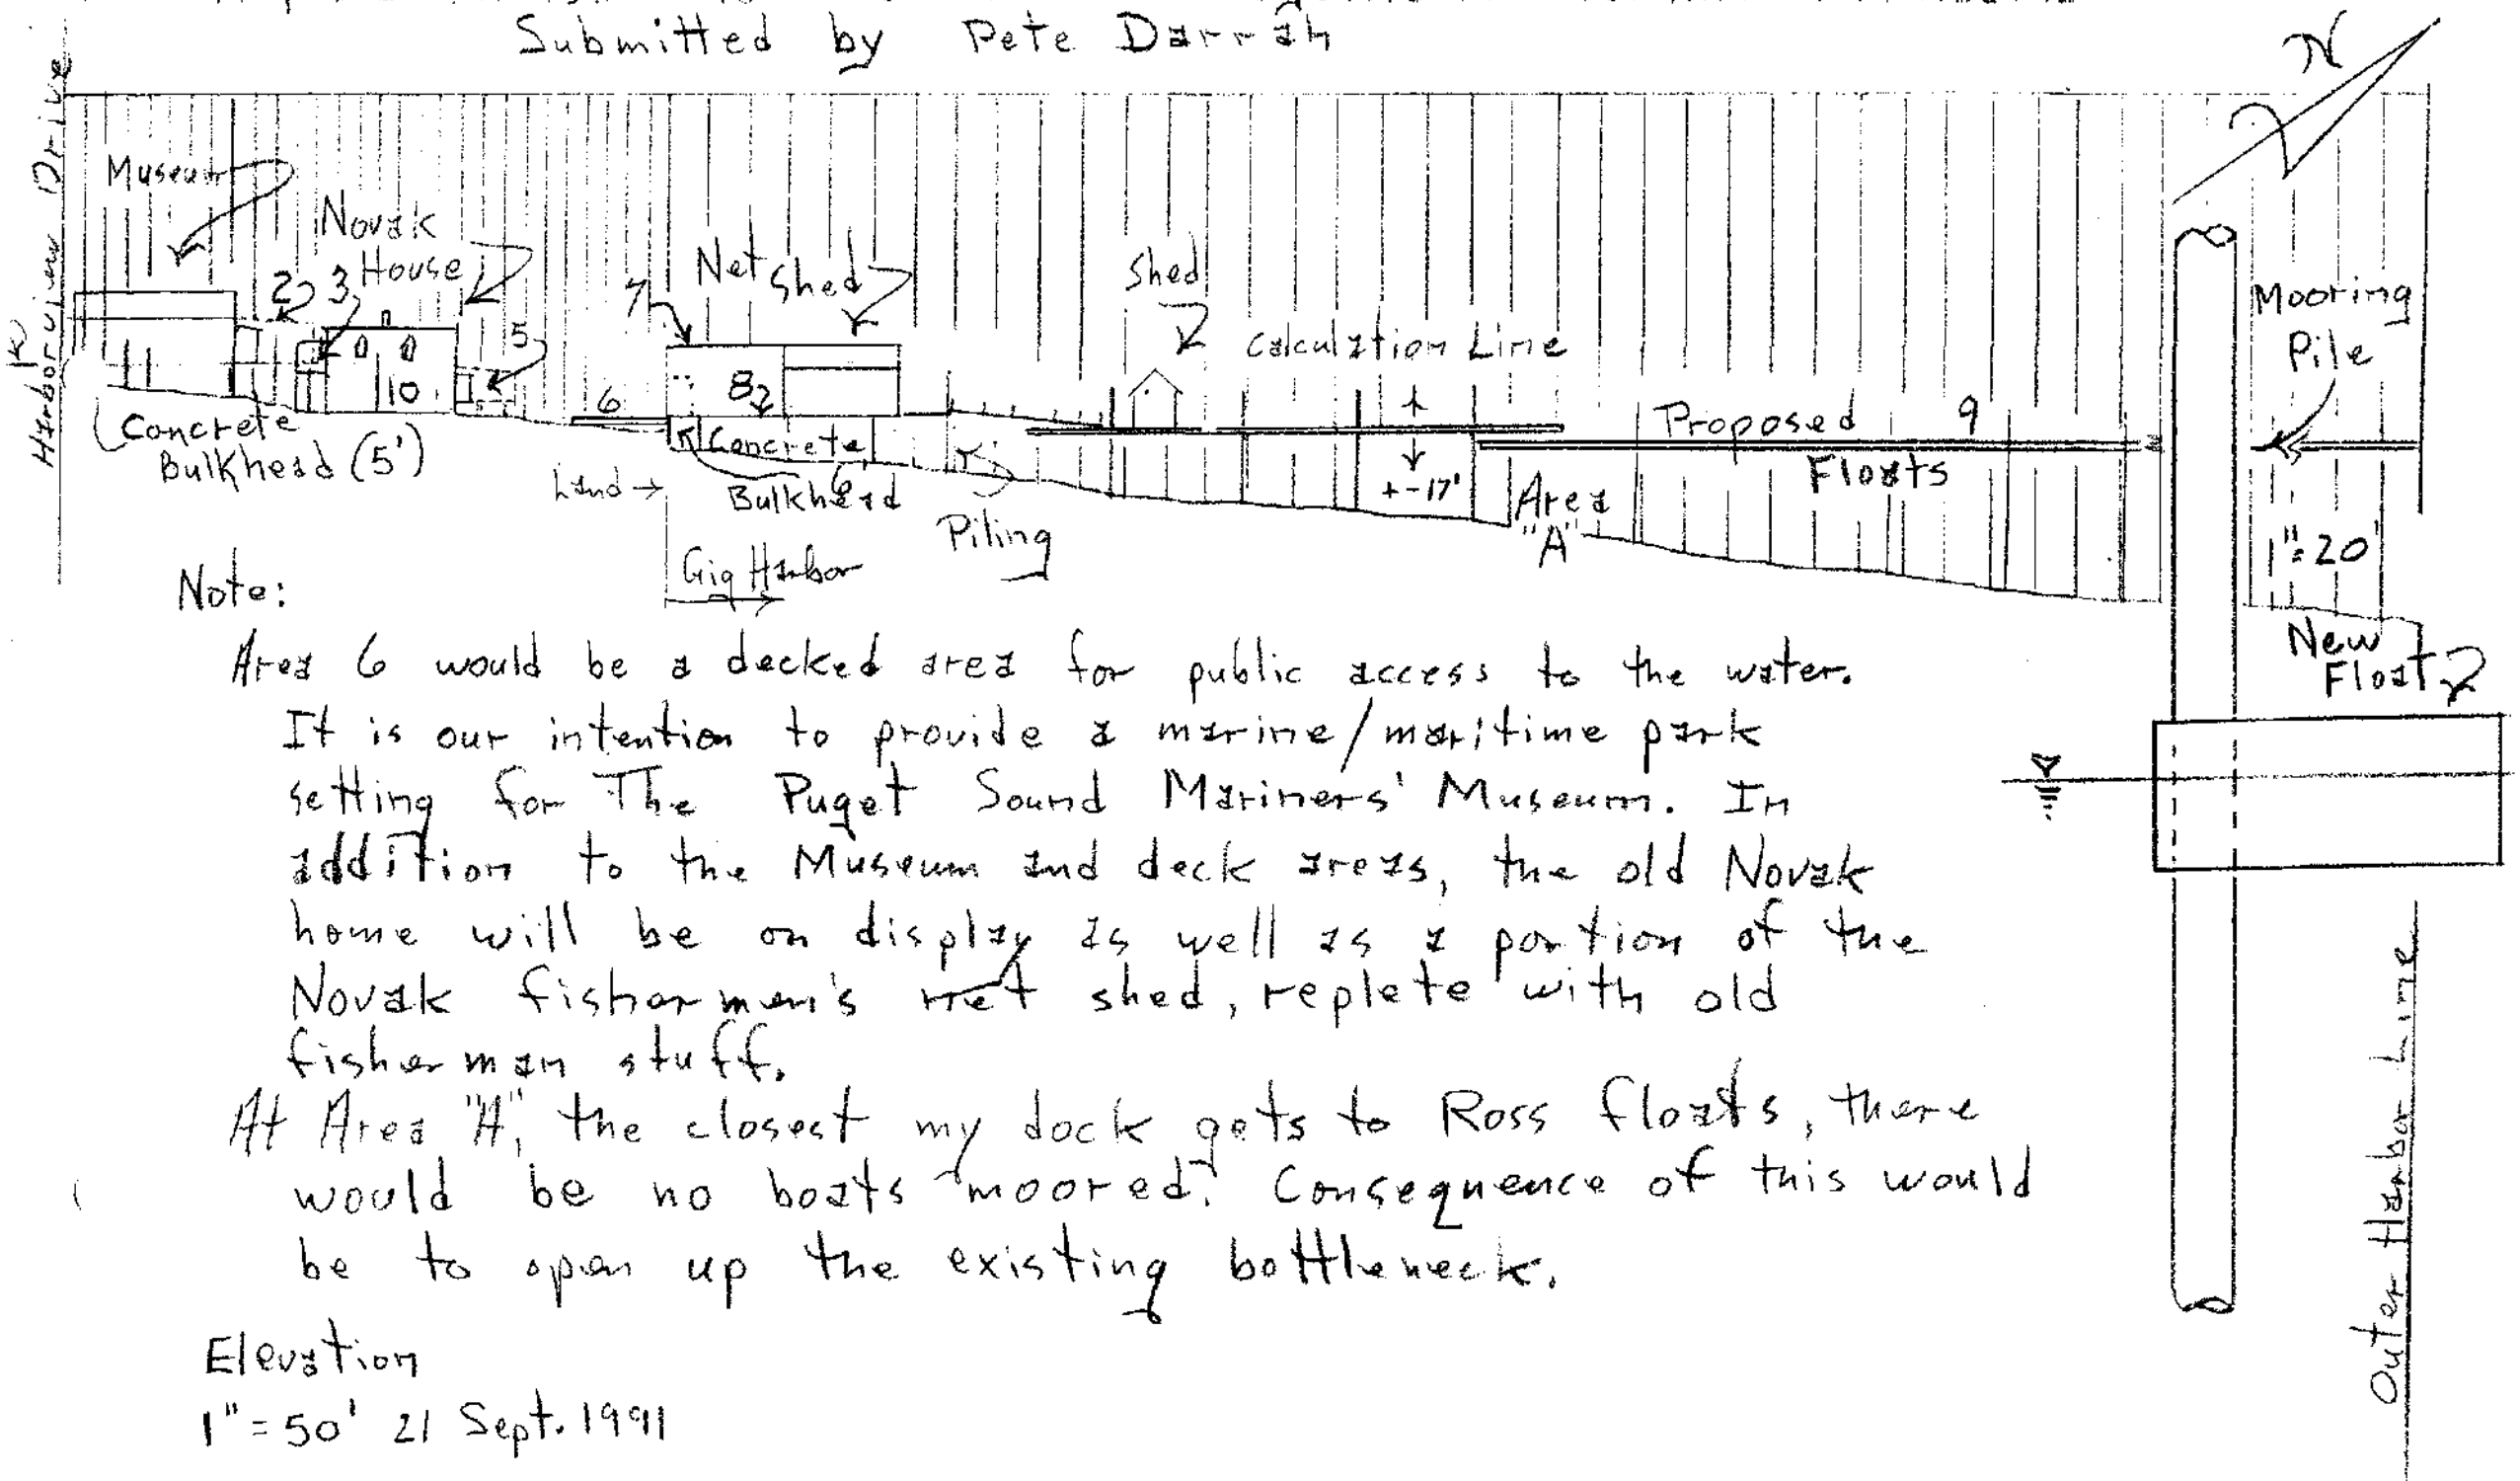 Submitted by Pete Darrah
N
Harborview Drive
Museum
Novak
House
2
3
5
6
7
Net Shed
8
Shed
Calculation Line
Proposed 9
Floats
Mooring
Pile
10
Concrete
Bulkhead (5')
Concrete
Bulkhead
6'
Land →
Piling
+-17'
Area
"A"
1"=20'
Gig Harbor
New
Float
Outer Harbor Line
Note:
Area 6 would be a decked area for public access to the water.
It is our intention to provide a marine/maritime park
setting for The Puget Sound Mariners' Museum. In
addition to the Museum and deck areas, the old Novak
home will be on display as well as a portion of the
Novak fishermen's net shed, replete with old
fisherman stuff.
At Area "A", the closest my dock gets to Ross floats, there
would be no boats moored. Consequence of this would
be to open up the existing bottleneck.
Elevation
1"=50' 21 Sept. 1991